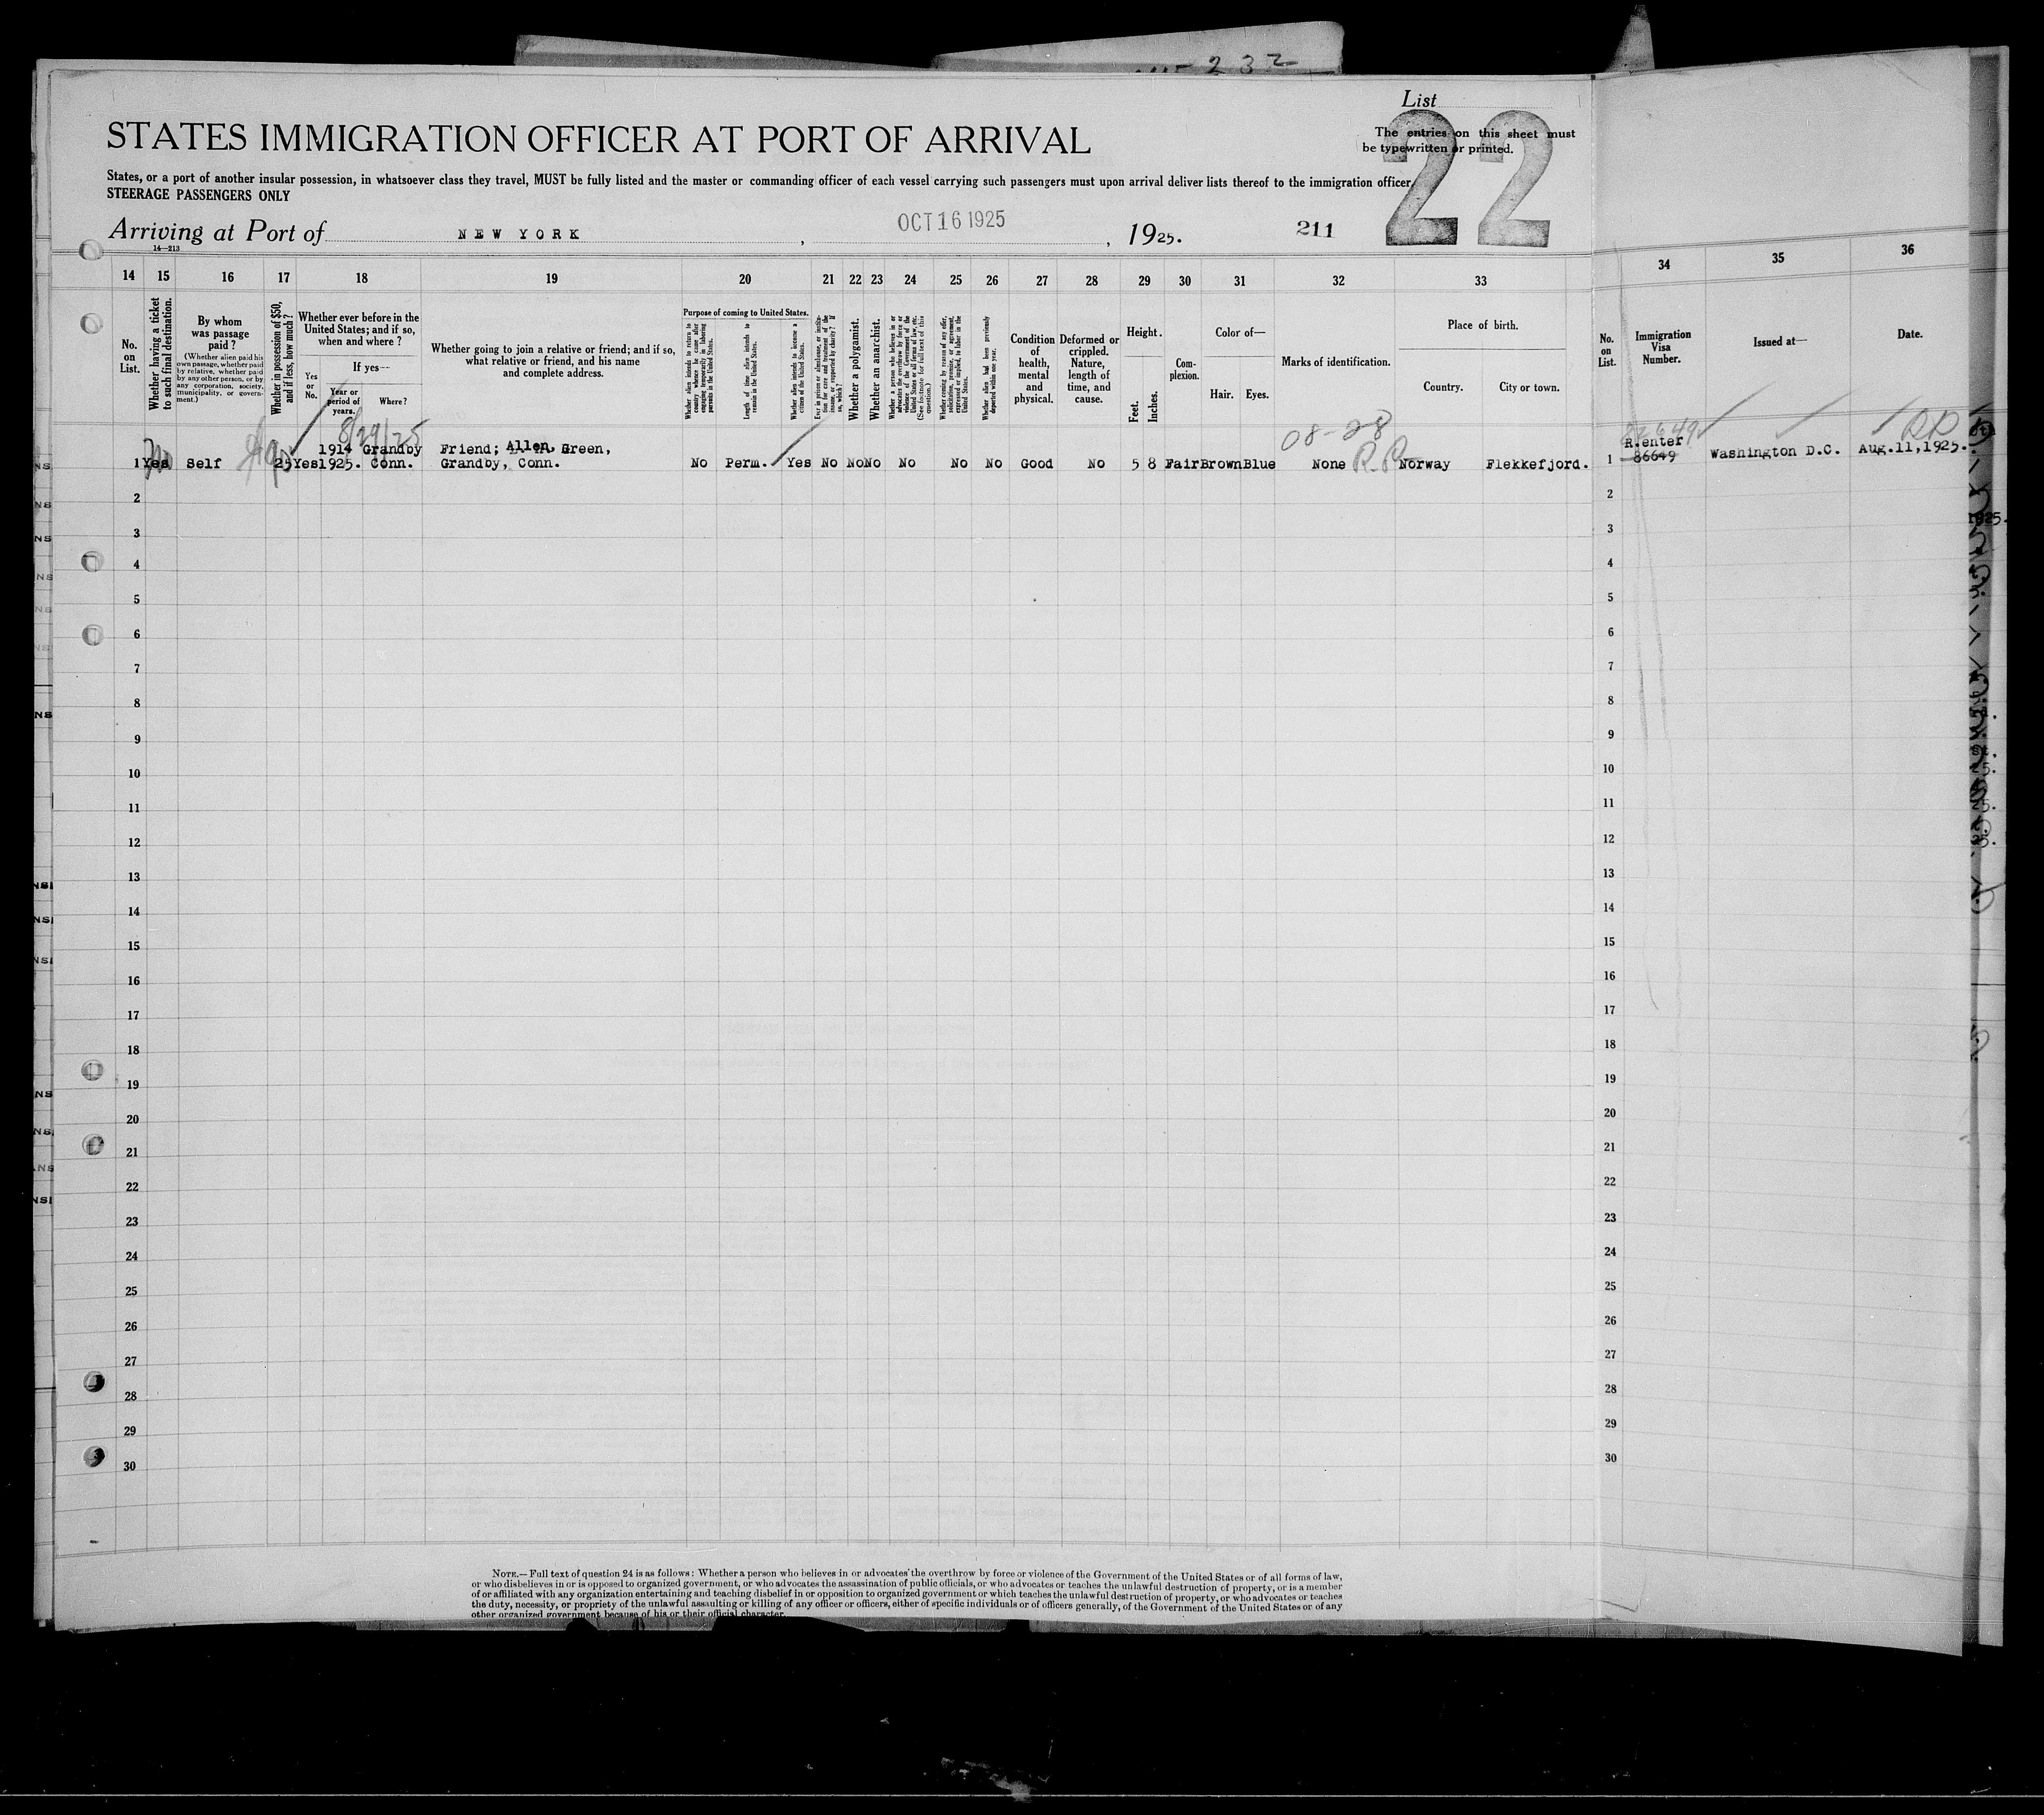 232
List
STATES IMMIGRATION OFFICER AT PORT OF ARRIVAL
The entries on this sheet must
be typewritten or printed.
22
States, or a port of another insular possession, in whatsoever class they travel, MUST be fully listed and the master or commanding officer of each vessel carrying such passengers must upon arrival deliver lists thereof to the immigration officer
STEERAGE PASSENGERS ONLY
Arriving at Port of NEW YORK, OCT 16 1925, 1925. 211
14—213
14 15 16 17 18 19 20 21 22 23 24 25 26 27 28 29 30 31 32 33 34 35 36
No. on List.
Whether having a ticket to such final destination.
By whom was passage paid?
(Whether alien paid his own passage, whether paid by relative, whether paid by any other person, or by any corporation, society, municipality, or government.)
Whether in possession of $50, and if less, how much?
Whether ever before in the United States; and if so, when and where?
Yes or No.
If yes—
Year or period of years.
Where?
Whether going to join a relative or friend; and if so, what relative or friend, and his name and complete address.
Purpose of coming to United States.
Whether alien intends to return to country whence he came after engaging temporarily in laboring pursuits in the United States.
Length of time alien intends to remain in the United States.
Whether alien intends to become a citizen of the United States.
Ever in prison or almshouse, or institution for care and treatment of the insane, or supported by charity? If so, which?
Whether a polygamist.
Whether an anarchist.
Whether a person who believes in or advocates the overthrow by force or violence of the Government of the United States or all forms of law, etc. (See footnote for full text of this question.)
Whether coming by reason of any offer, solicitation, promise, or agreement, expressed or implied, to labor in the United States.
Whether alien had been previously deported within one year.
Condition of health, mental and physical.
Deformed or crippled. Nature, length of time, and cause.
Height.
Feet.
Inches.
Complexion.
Color of—
Hair.
Eyes.
Marks of identification.
Place of birth.
Country.
City or town.
No. on List.
Immigration Visa Number.
Issued at—
Date.
8/29/25
08-28
82649
RR
1914 Grandby Friend; Allen Green, R.enter
1 Yes Self 25 Yes 1925. Conn. Grandby, Conn. No Perm. Yes No No No No No No Good No 5 8 Fair Brown Blue None R.R. Norway Flekkefjord. 1 86649 Washington D.C. Aug.11,1925.
2 2
3 3
4 4
5 5
6 6
7 7
8 8
9 9
10 10
11 11
12 12
13 13
14 14
15 15
16 16
17 17
18 18
19 19
20 20
21 21
22 22
23 23
24 24
25 25
26 26
27 27
28 28
29 29
30 30
NOTE.—Full text of question 24 is as follows: Whether a person who believes in or advocates the overthrow by force or violence of the Government of the United States or of all forms of law,
or who disbelieves in or is opposed to organized government, or who advocates the assassination of public officials, or who advocates or teaches the unlawful destruction of property, or is a member
of or affiliated with any organization entertaining and teaching disbelief in or opposition to organized government or which teaches the unlawful destruction of property, or who advocates or teaches
the duty, necessity, or propriety of the unlawful assaulting or killing of any officer or officers, either of specific individuals or of officers generally, of the Government of the United States or of any
other organized government because of his or their official character.